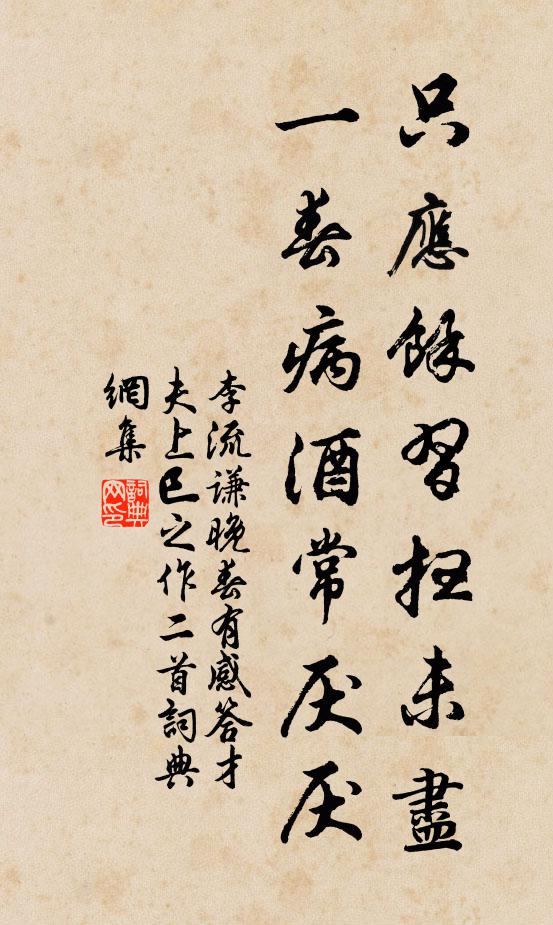 只應餘習抂未盡
一春病酒常厌厌
李流謙晚春有感答才
夫上巳之作二首詞典
網集
詞典
网印